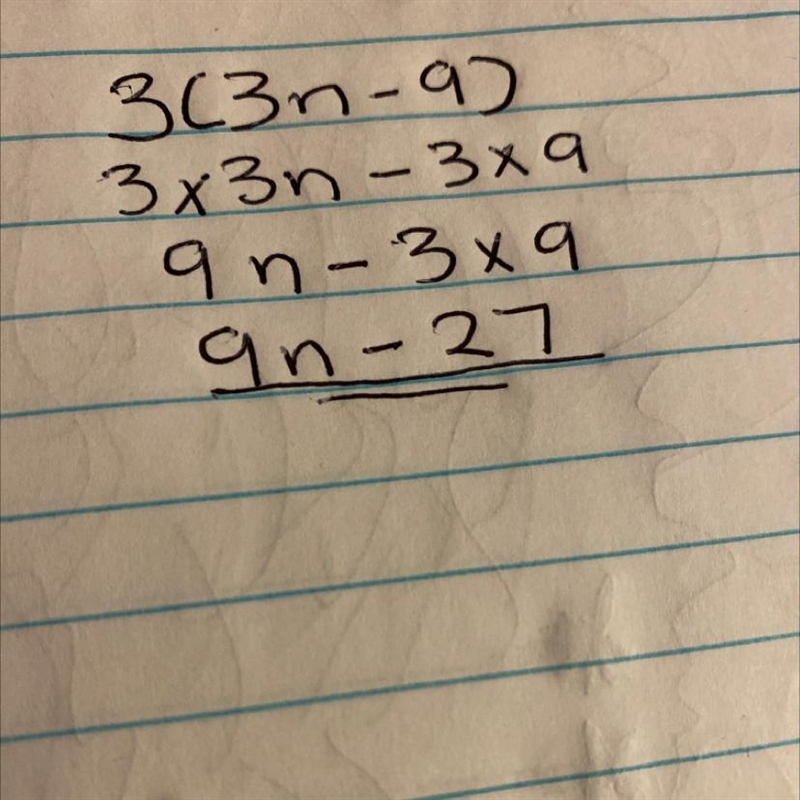 3(3n - 9)
3 × 3n - 3 × 9
9n - 3 × 9
9n - 27